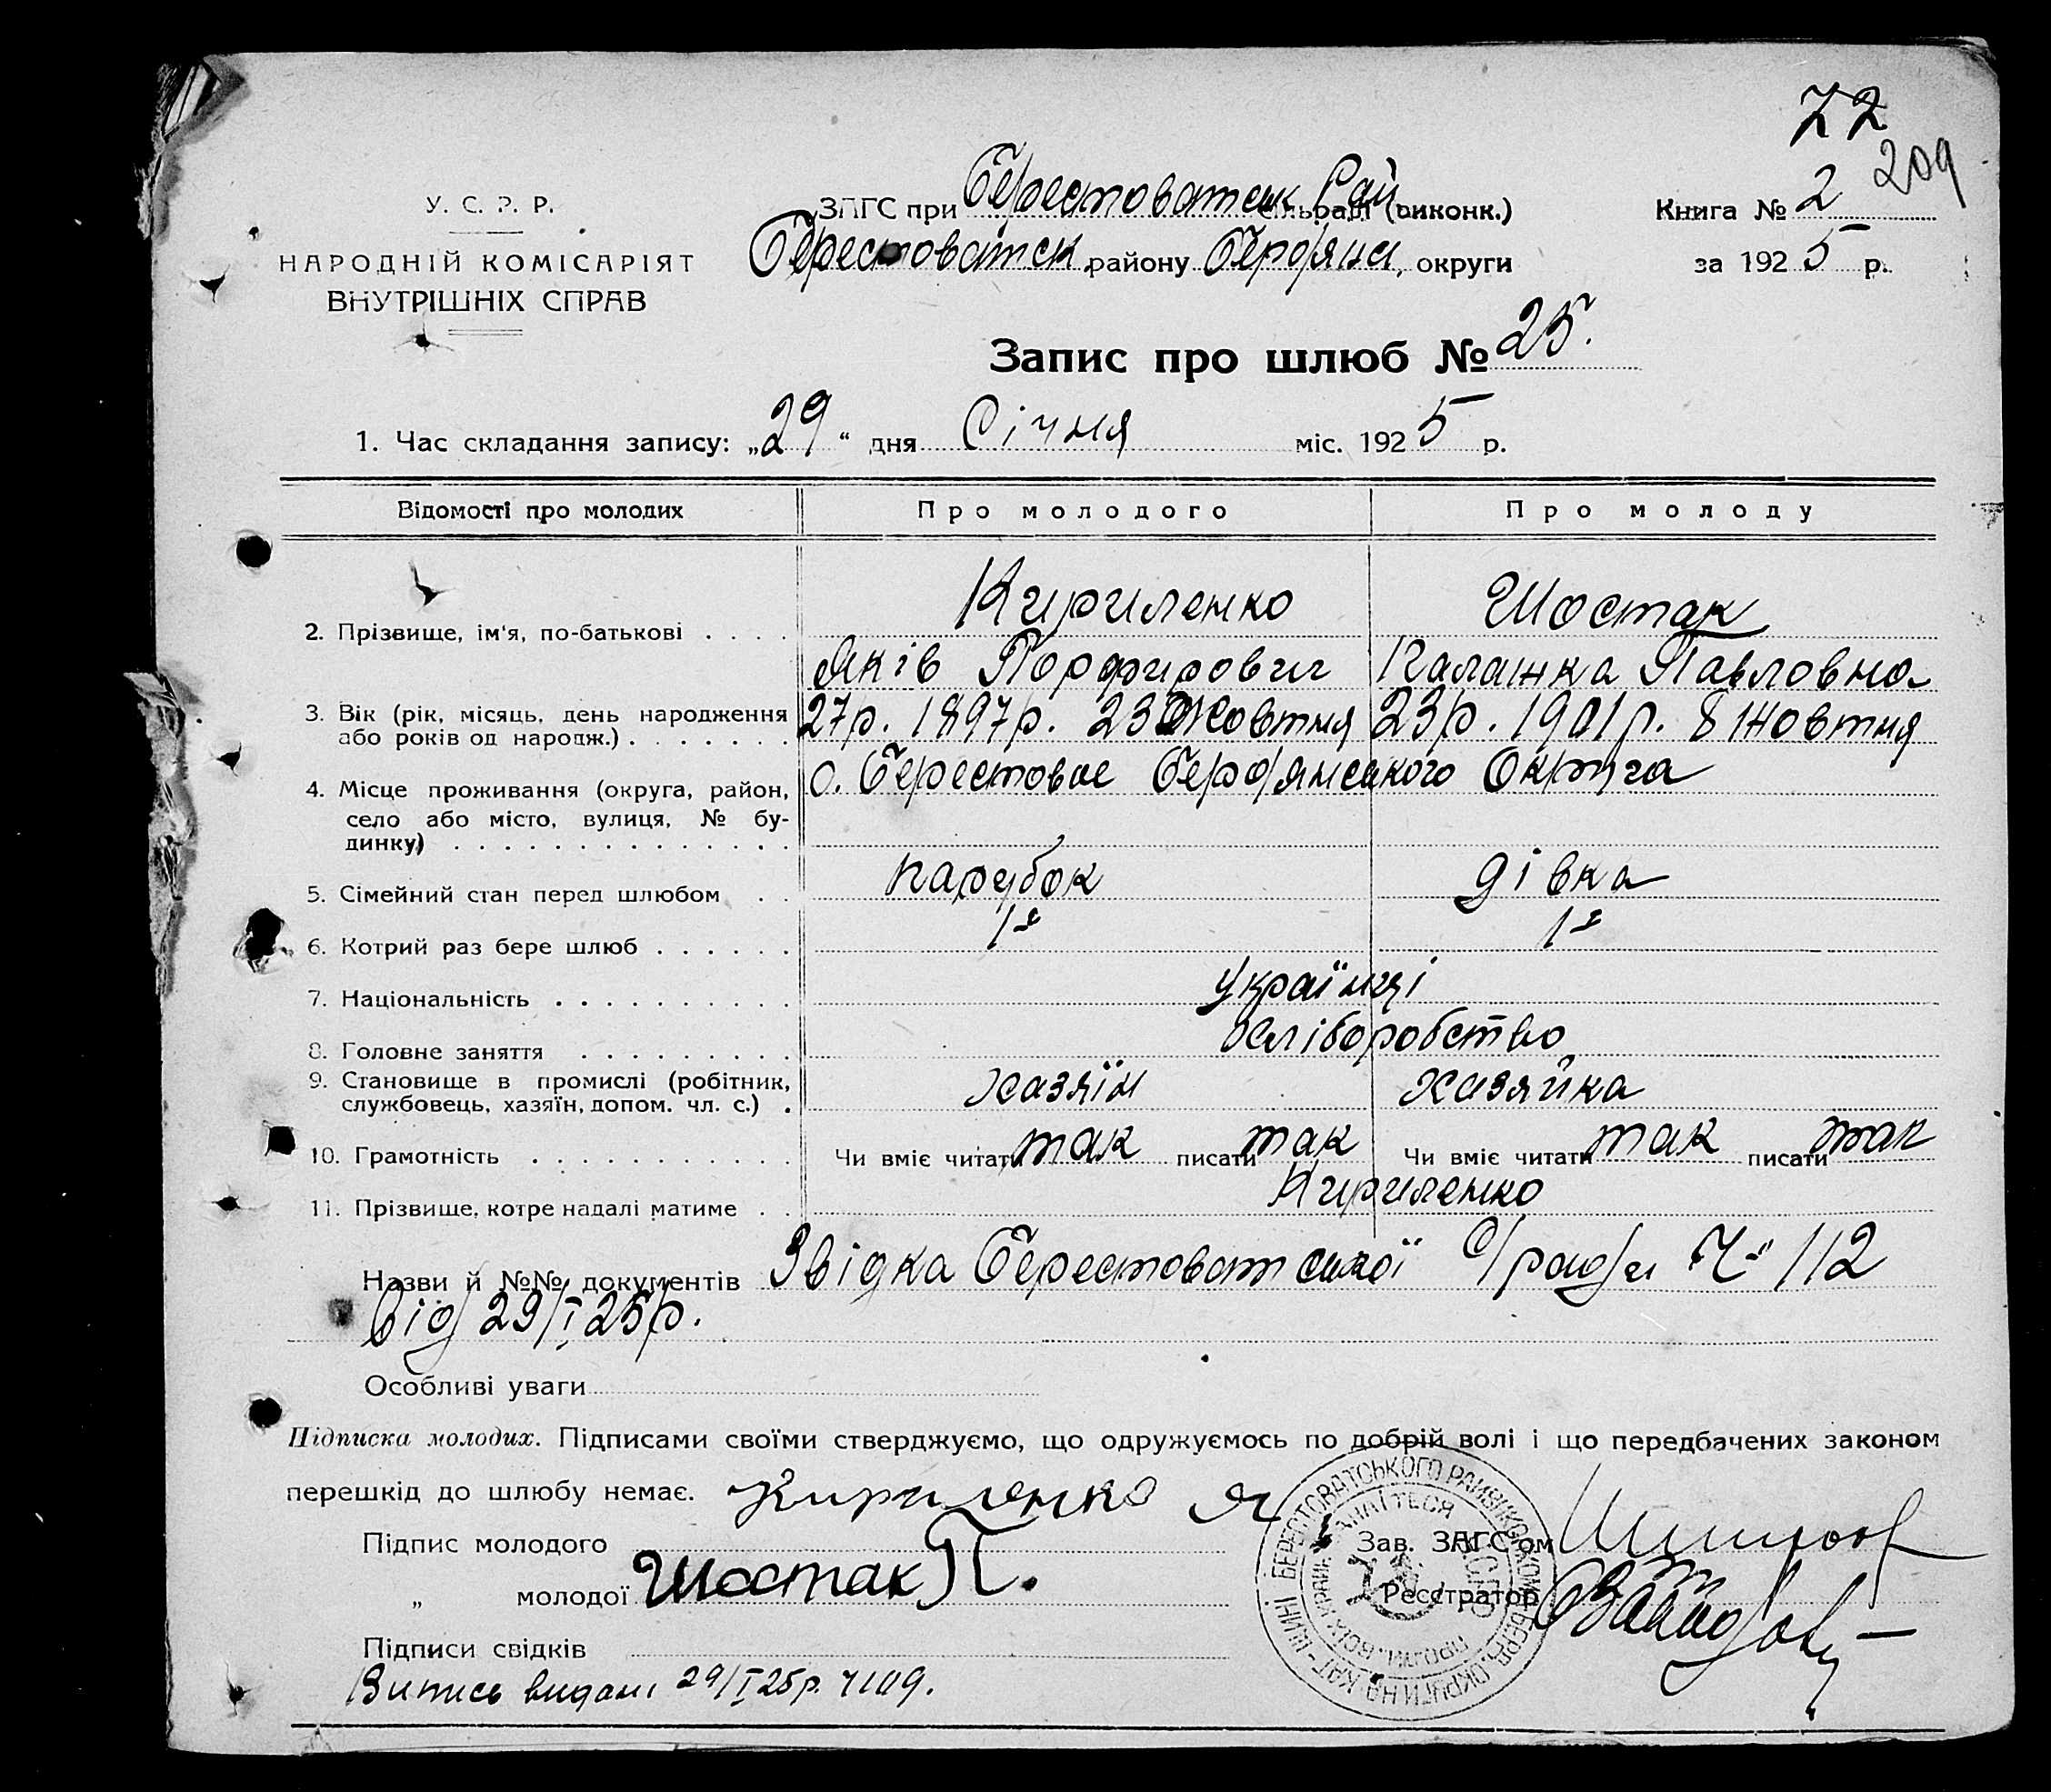 72
209
У. С. Р. Р.
НАРОДНІЙ КОМІСАРІЯТ
ВНУТРІШНІХ СПРАВ
ЗАГС при Берестоватськ Рай. сільраді (виконк.)
Берестоватськ. району Бердянськ. округи
Книга № 2
за 1925 р.
Запис про шлюб № 25.
1. Час складання запису: „29“ дня Січня міс. 1925 р.
Відомості про молодих Про молодого Про молоду
2. Прізвище, ім'я, по-батькові . . . . Кириленко Шостак
Яків Порфирович Палашка Павловна
3. Вік (рік, місяць, день народження або років од народж.) . . . . . . . 27р. 1897р. 23 Жовтня 23р. 1901р. 8 Жовтня
4. Місце проживання (округа, район, село або місто, вулиця, № будинку) . . . . . . . . . . . . . . с. Берестовое Бердянського Округа
5. Сімейний стан перед шлюбом . . парубок дівка
6. Котрий раз бере шлюб . . . . . . 1й 1й
7. Національність . . . . . . . . . . українці
8. Головне заняття . . . . . . . . . хліборобство
9. Становище в промислі (робітник, службовець, хазяїн, допом. чл. с.) . хазяїн хазяйка
10. Грамотність . . . . . . . . . . . Чи вміє читати так писати так Чи вміє читати так писати так
11. Прізвище, котре надалі матиме . . Кириленко
Назви й №№ документів Звідка Берестоватської с/ради Ч. 112
від 29/I 25р.
Особливі уваги
Підписка молодих. Підписами своїми стверджуємо, що одружуємось по добрій волі і що передбачених законом
перешкід до шлюбу немає. Кириленко Я
Підпис молодого
„ молодої Шостак П.
Зав. ЗАГС'ом
Реєстратор
Підписи свідків
Випись видані 29/I 25р. Ч 109.
БЕРЕСТОВАТСЬКОГО РАЙВИКОНКОМУ БЕРД. ОКРУГИ НА КАТ-ЩИНІ
ПРОЛЕТ. ВСІХ КРАЇН ЄДНАЙТЕСЯ УСРР